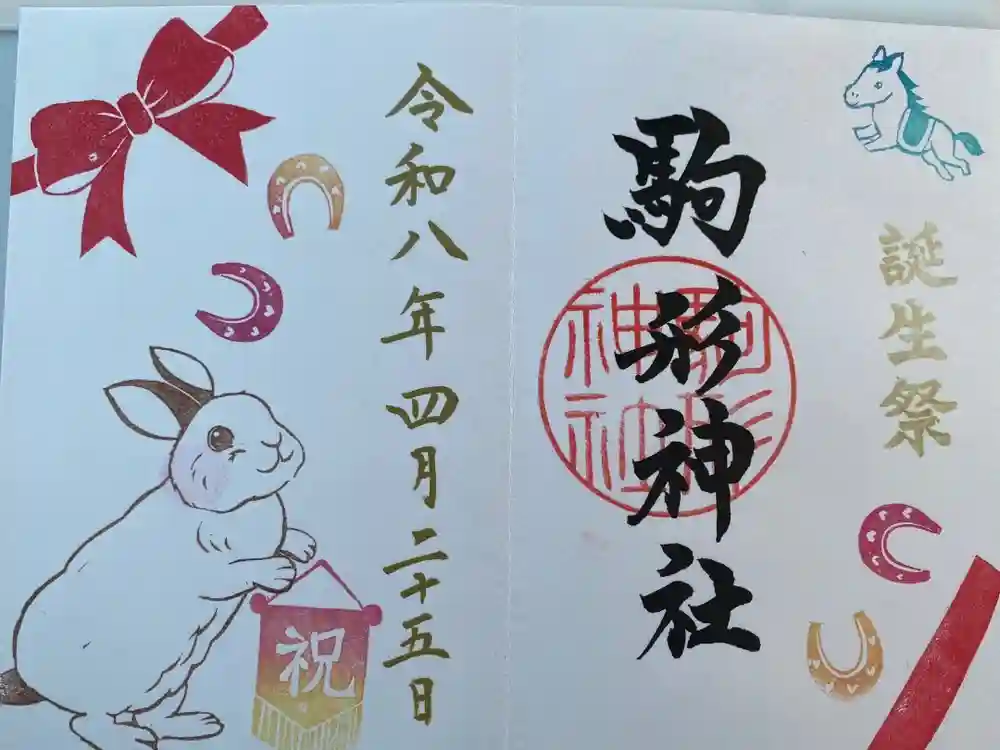 誕生祭
駒形神社
駒形神社
令和八年四月二十五日
祝